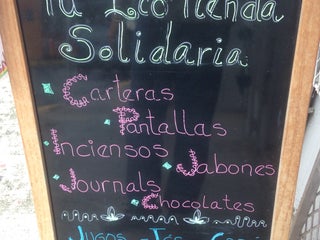 Tu Eco Tienda
Solidaria
Carteras
Pantallas
Inciensos
Jabones
Journals
Chocolates
Jugos